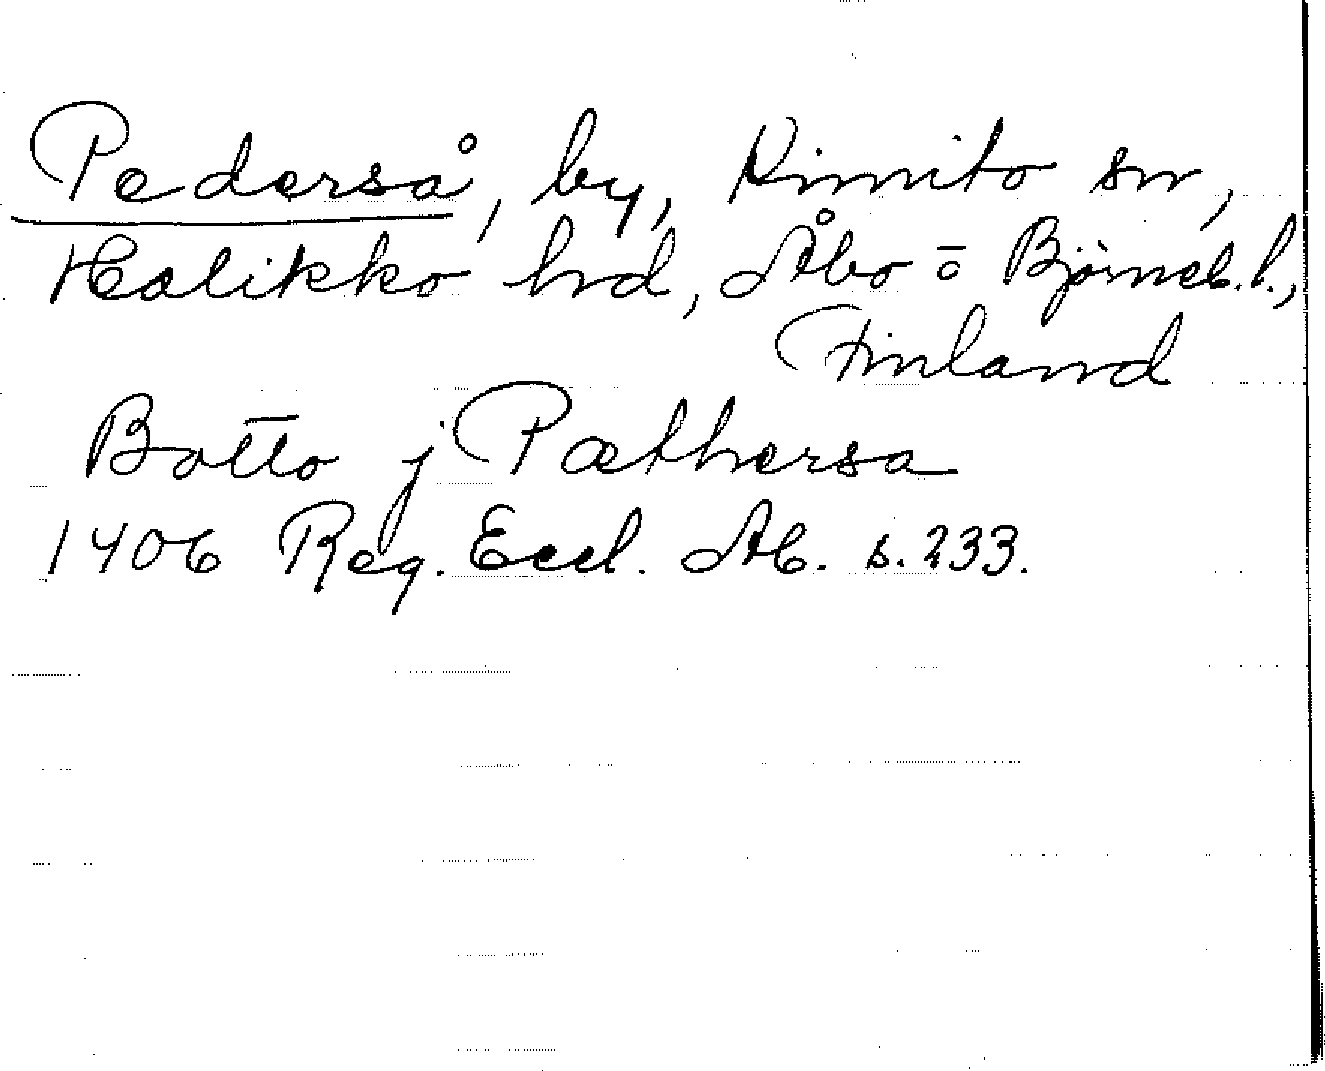 Pederså, by, Kimito sn,
Halikko hd, Åbo o Björneb. l.,
Finland
Botto j Pæthersa
1406 Reg. Eccl. Ab. s. 233.